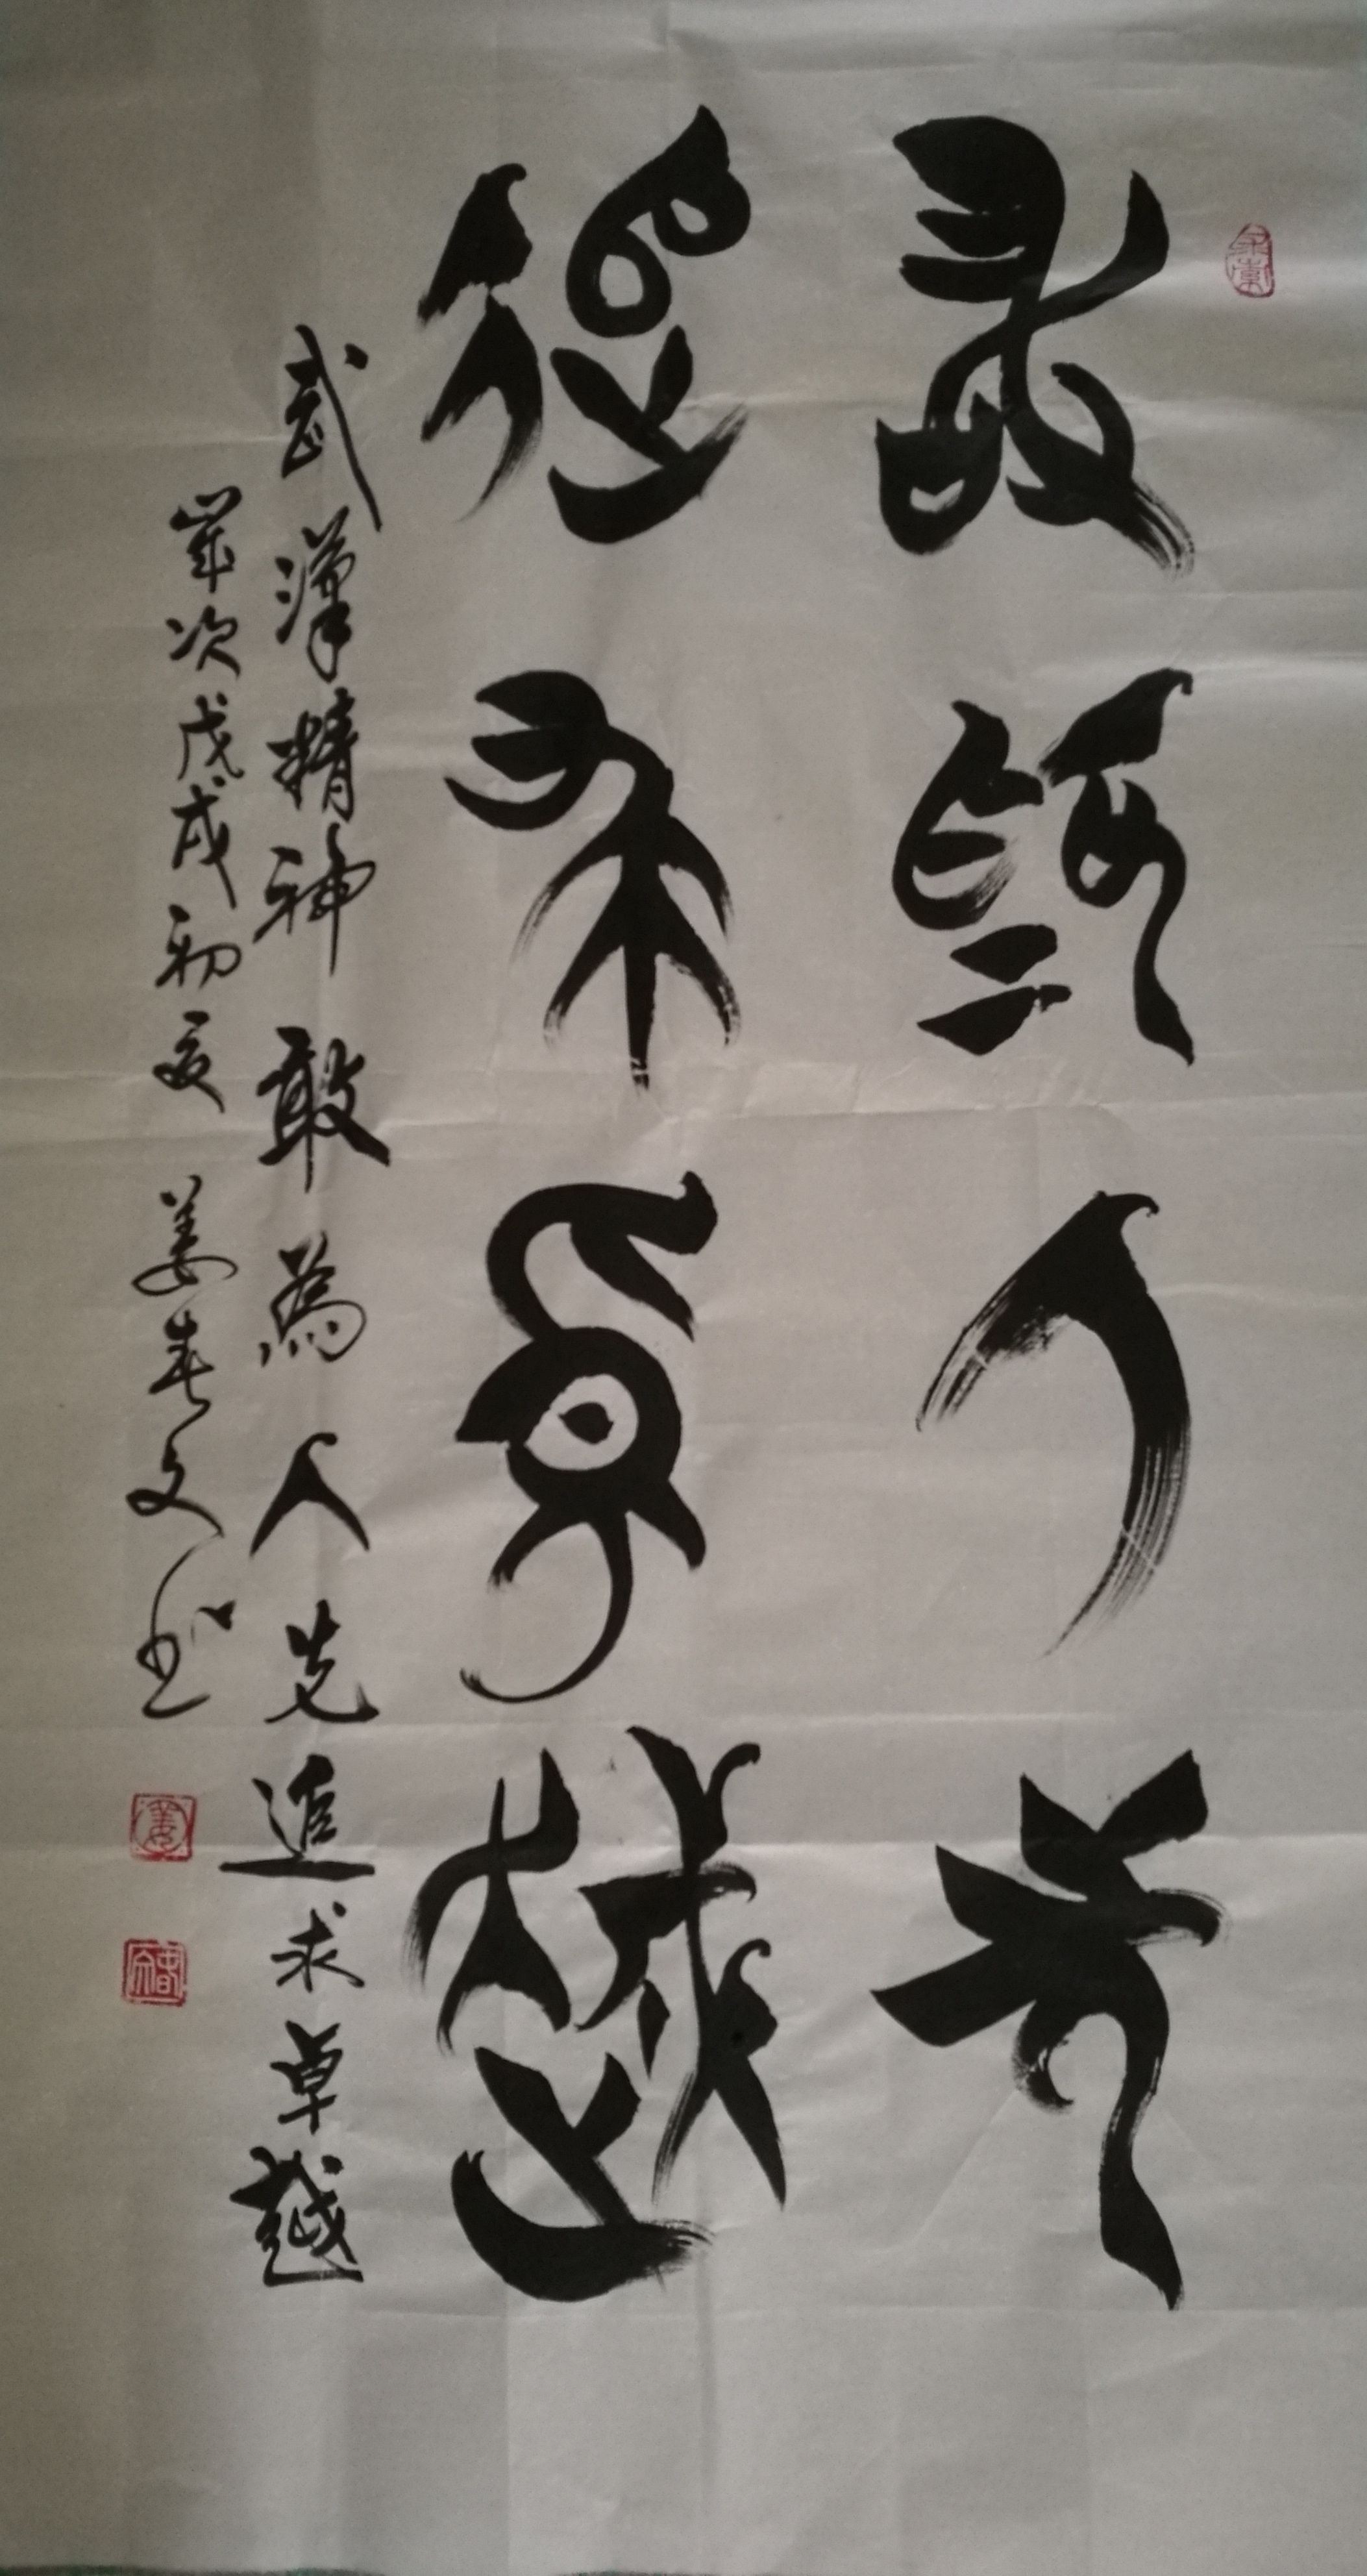 敢為人先
追求卓越
武漢精神敢為人先追求卓越
歲次戊戌初夏姜春文書
姜
春文